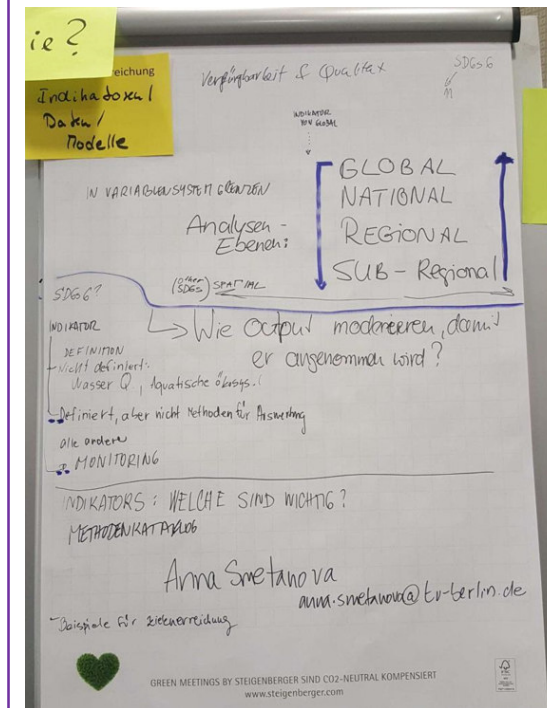 ie?
eichung
Indikatoren/
Daten/
Modelle
Verfürgbarkeit & Qualität
SDGs 6
11
INDIKATOR
VON GLOBAL
IN VARIABLENSYSTEM GRENZEN
Analysen-
Ebenen:
GLOBAL
NATIONAL
REGIONAL
SUB-Regional
(Other
SDGs) SPATIAL
SDGs 6?
Wie Output moderieren, damit
er angenommen wird?
INDIKATOR
DEFINITION
- Nicht definiert:
Wasser Q, Aquatische ökosys.
Definiert, aber nicht Methoden für Auswertung
alle andere
MONITORING
INDIKATORS: WELCHE SIND WICHTIG?
METHODENKATALOG
Anna Smetanova
anna.smetanova@tu-berlin.de
- Beispiele für zielenerreidung
GREEN MEETINGS BY STEIGENBERGER SIND CO2-NEUTRAL KOMPENSIERT
www.steigenberger.com